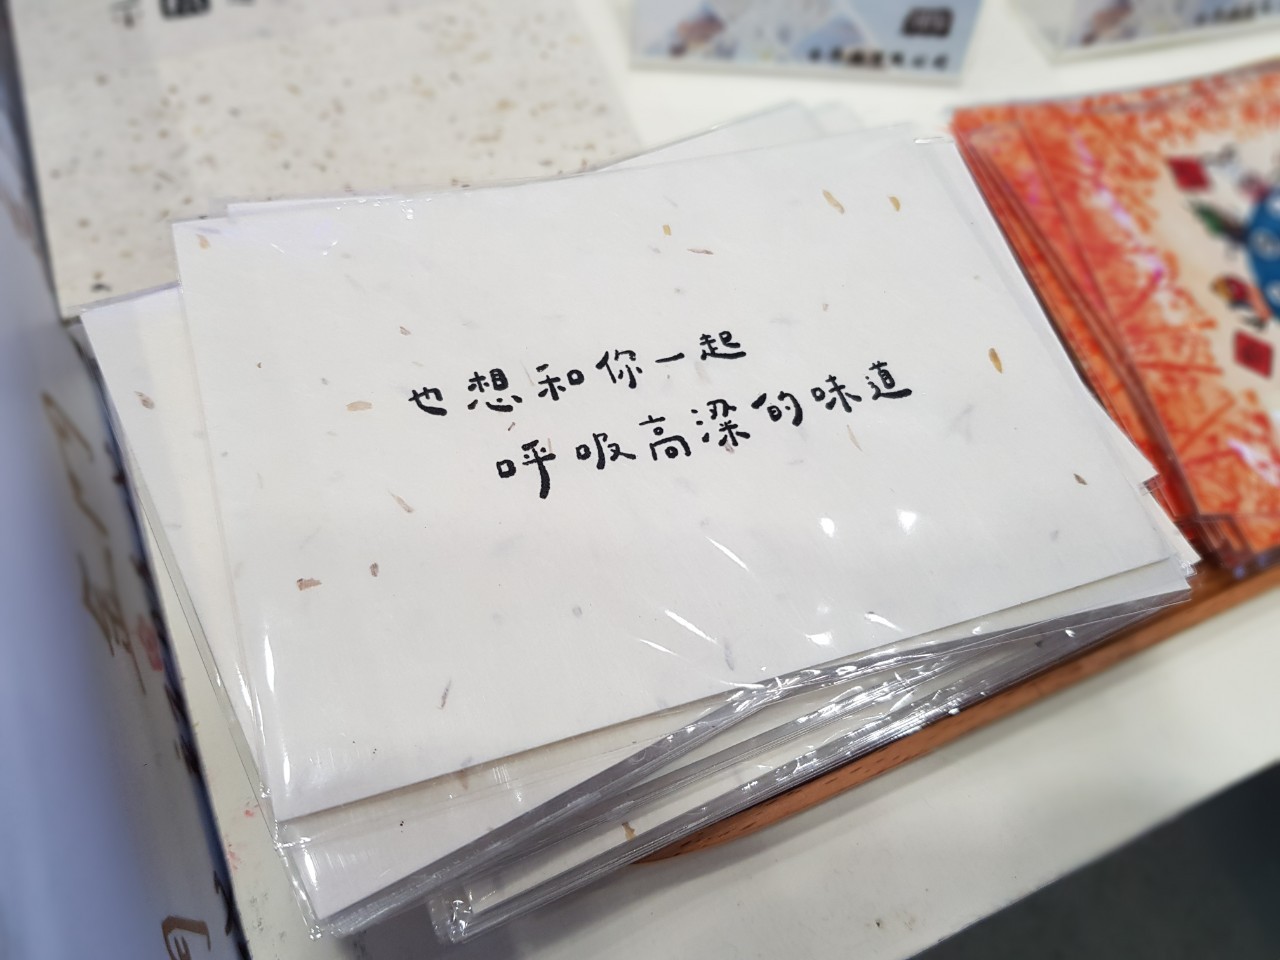 也想和你一起
呼吸高粱的味道